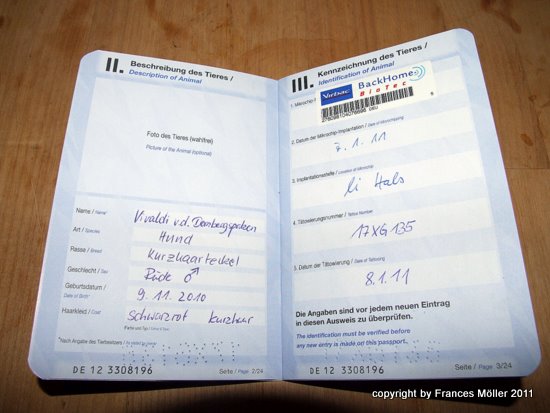 II. Beschreibung des Tieres /
Description of Animal
Foto des Tieres (wahlfrei)
Picture of the Animal (optional)
Name / Name* Vivaldi v.d.
Art / Species Hund
Rasse / Breed Kurzhaarteckel
Geschlecht / Sex Rüde ♂
Geburtsdatum / 9.11.2010
Date of Birth*
Haarkleid / Coat schwarzrot kurzhaar
*Nach Angabe des Tierbesitzers / As stated by owner
DE 12 3308196
Seite / Page 2/24
III. Kennzeichnung des Tieres /
Identification of Animal
1. Mikrochip-
Virbac BackHome
BioTec
2. Datum der Mikrochip-Implantation / Date of Microchipping
7.1.11
3. Implantationsstelle / Location of Microchip
li Hals
4. Tätowierungsnummer / Tattoo Number
17XG135
5. Datum der Tätowierung / Date of Tattooing
8.1.11
Die Angaben sind vor jedem neuen Eintrag
in diesen Ausweis zu überprüfen.
The identification must be verified before
any new entry is made on this passport.
DE 12 3308196
Seite / Page 3/24
copyright by Frances Möller 2011